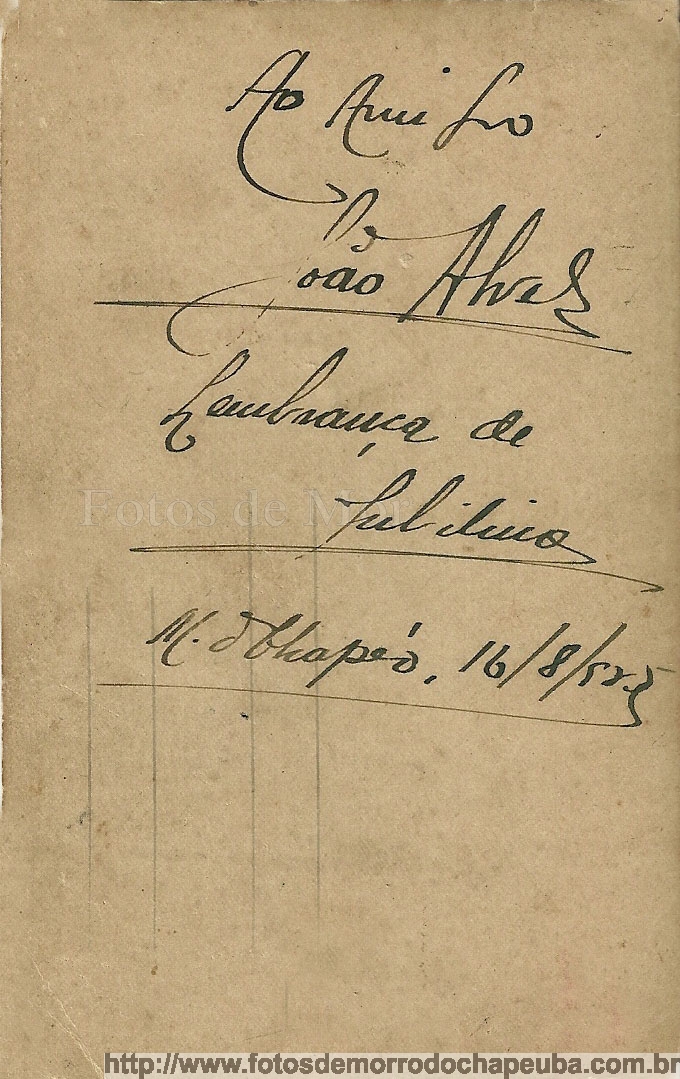 Ao Amigo
João Alves
Lembrança de
Jubilino
Fotos de Mor
M. do Chapéo, 16/8/925
http://www.fotosdemorrodochapeuba.com.br